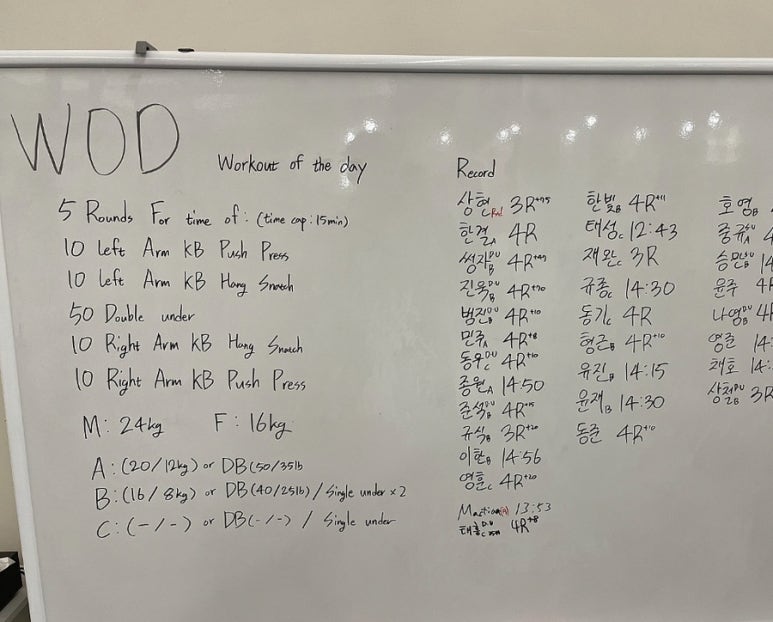 WOD Workout of the day
5 Rounds For time of: (time cap: 15min)
10 Left Arm KB Push Press
10 Left Arm KB Hang Snatch
50 Double under
10 Right Arm KB Hang Snatch
10 Right Arm KB Push Press
M: 24kg F: 16kg
A: (20/12kg) or DB(50/35lb
B: (16/8kg) or DB(40/25lb) / Single under × 2
C: (-/-) or DB(-/-) / Single under
Record
상현 Rxd 3R+75
한결A 4R
썽자DU B 4R+49
진욱DU B 4R+70
범진DU B 4R+10
민주A 4R+8
동우DU C 4R+10
종원A 14:50
준석DU B 4R+15
규식B 3R+20
이환B 14:56
영훈C 4R+20
13:53
태홍 DU C 4R+8
한빛B 4R+11
태성C 12:43
재완C 3R
규종C 14:30
동기C 4R
형근B 4R+10
유진B 14:15
윤재B 14:30
동준 4R+10
호영B
중규DU A 4
승민DU B 14
윤주 4R
나영DU B 4R
영준 14:
채호 14:
상철DU B 3R